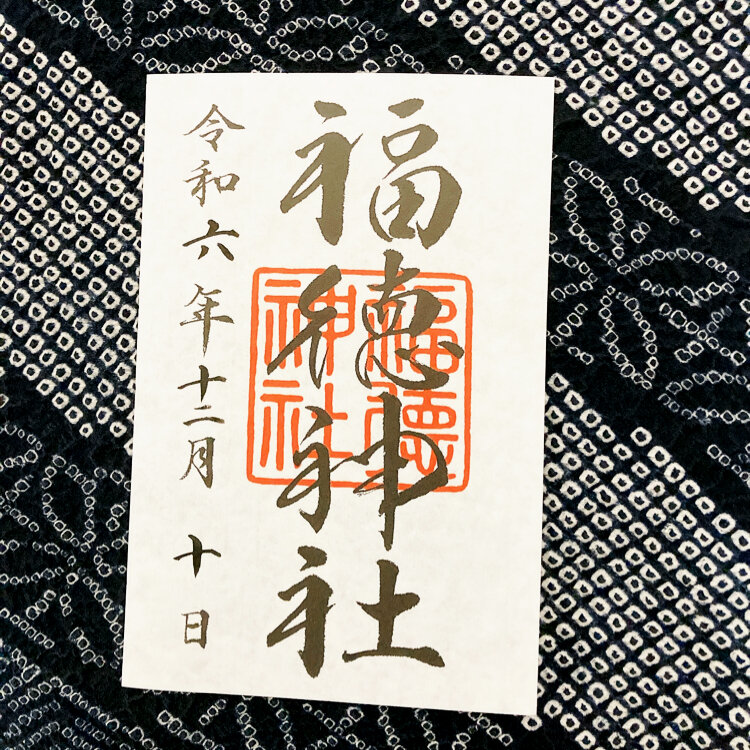 福徳神社
福徳神社
令和六年十二月十日